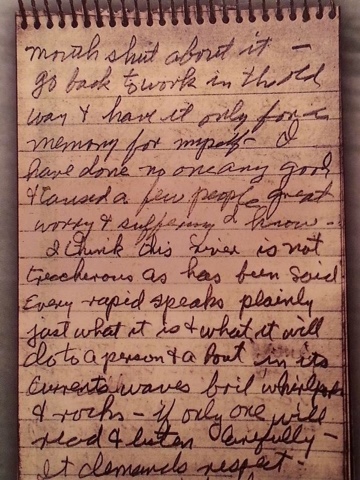 mouth shut about it —
go back to work in the old
way & have it only for a
memory for myself— I
have done no one any good
& caused a few people great
worry & suffering I know —
I think this river is not
treacherous as has been said
Every rapid speaks plainly
just what it is & what it will
do to a person & a boat in its
currents waves boil whirlpools
& rocks — if only one will
read & listen carefully —
It demands respect —